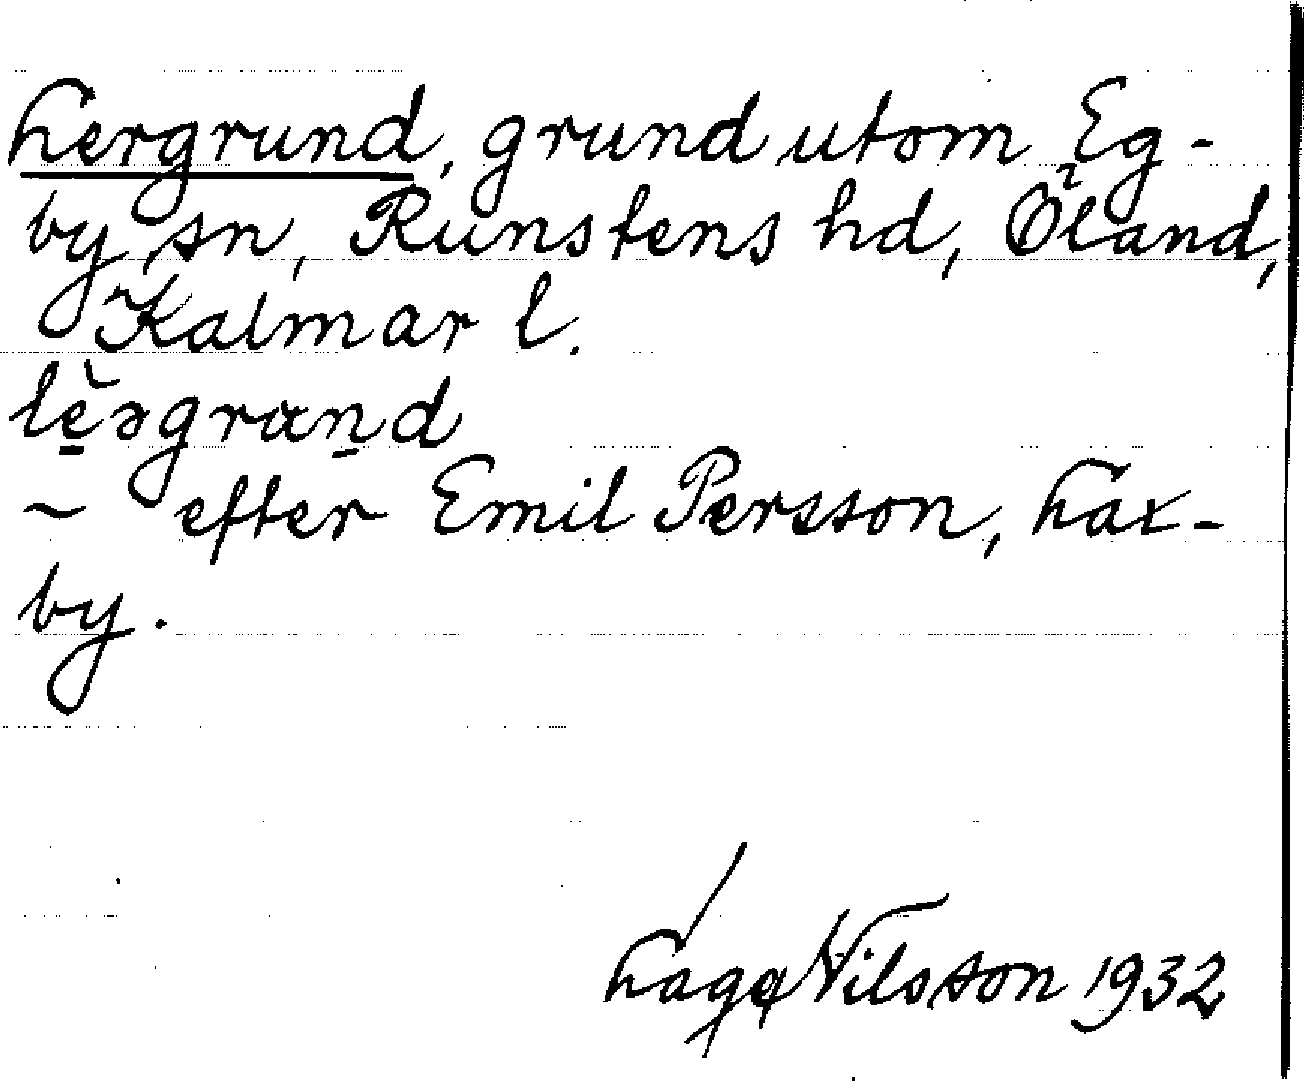 Lergrund, grund utom Eg-
by sn, Runstens hd, Öland,
Kalmar l.
lĕ̱əgrαn̠d
~ efter Emil Persson, Lax-
by.
Lage Nilsson 1932